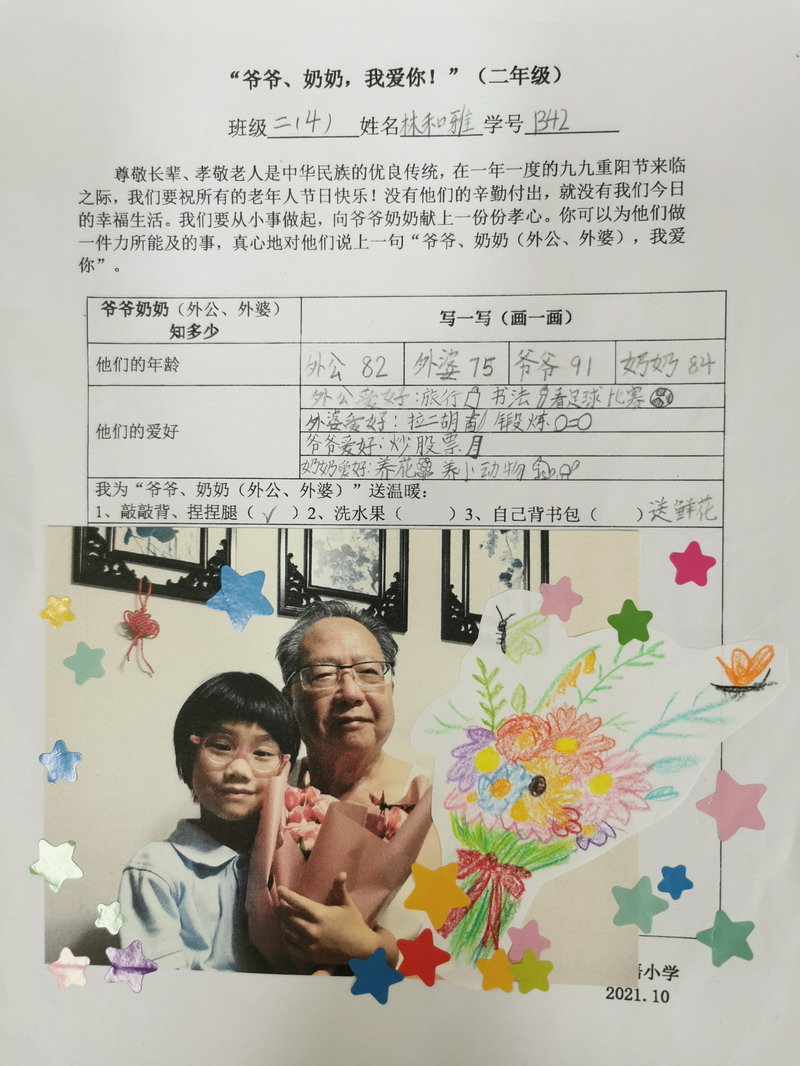 “爷爷、奶奶，我爱你！”（二年级）
班级二(4) 姓名林和雅 学号B42
尊敬长辈、孝敬老人是中华民族的优良传统，在一年一度的九九重阳节来临
之际，我们要祝所有的老年人节日快乐！没有他们的辛勤付出，就没有我们今日
的幸福生活。我们要从小事做起，向爷爷奶奶献上一份份孝心。你可以为他们做
一件力所能及的事，真心地对他们说上一句“爷爷、奶奶（外公、外婆），我爱
你”。
爷爷奶奶（外公、外婆）
知多少
写一写（画一画）
他们的年龄
外公 82 外婆 75 爷爷 91 奶奶 84
他们的爱好
外公爱好：旅行 书法 看足球比赛
外婆爱好：拉二胡 锻炼
爷爷爱好：炒股票
奶奶爱好：养花 养小动物
我为“爷爷、奶奶（外公、外婆）”送温暖：
1、敲敲背、捏捏腿（✓）2、洗水果（ ）3、自己背书包（ ）送鲜花
小学
2021.10